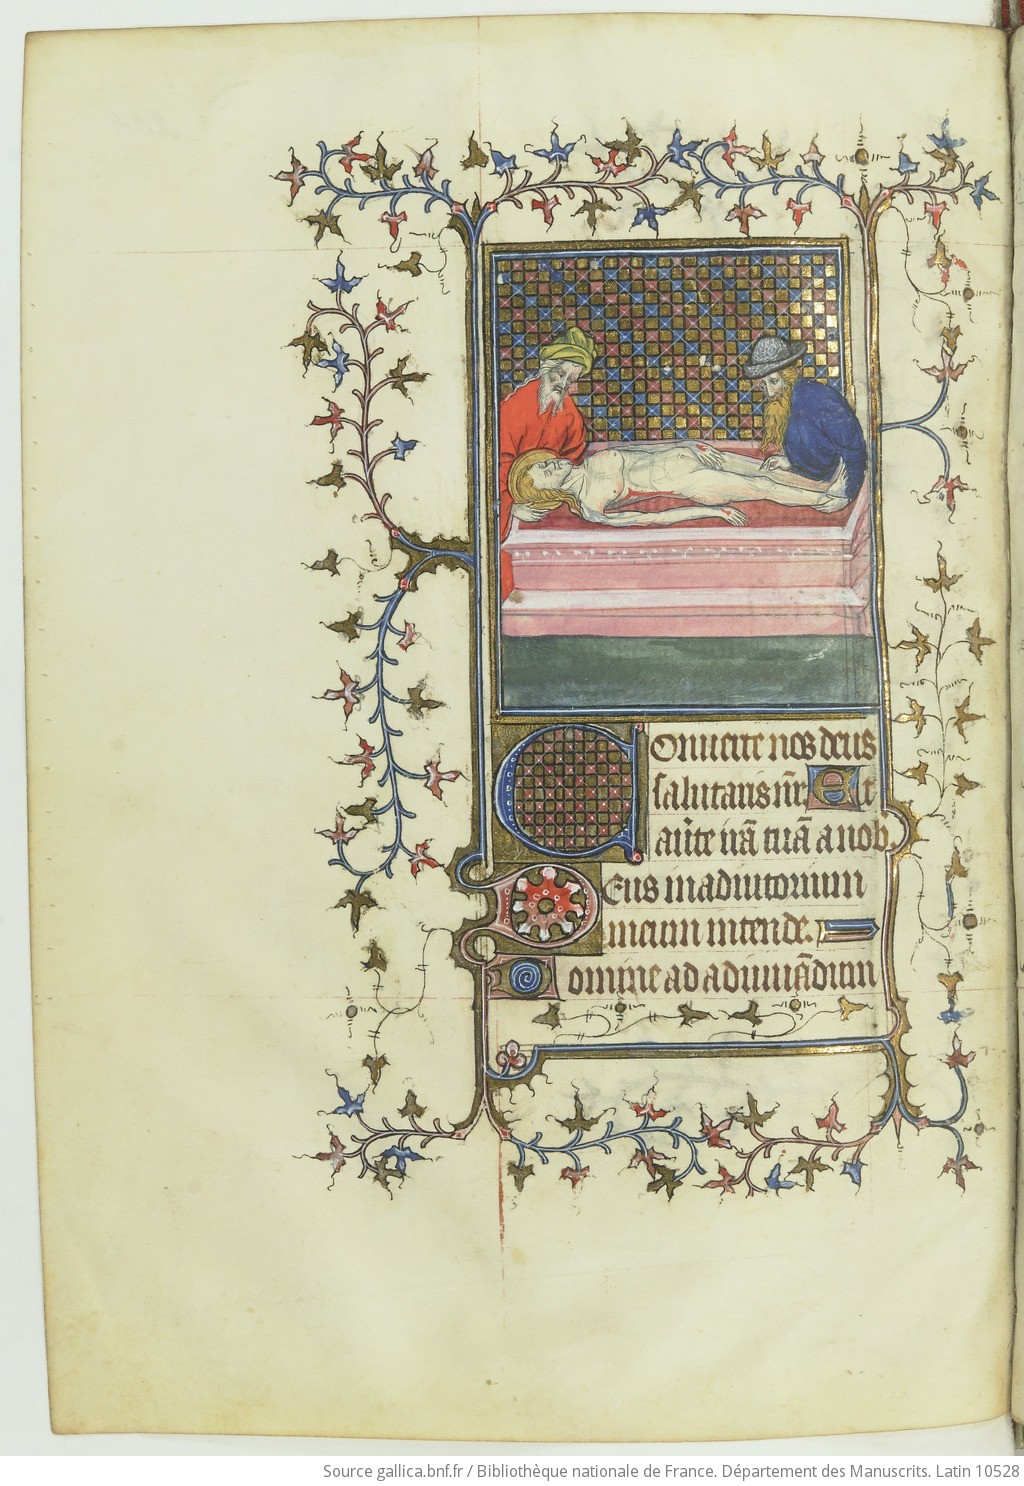 Conuerte nos deus
salutaris nr̄ Et
au̾te irā tuā a nob̾.
Deus in adiutorium
meum intende.
Domine ad adiuuādum
Source gallica.bnf.fr / Bibliothèque nationale de France. Département des Manuscrits. Latin 10528